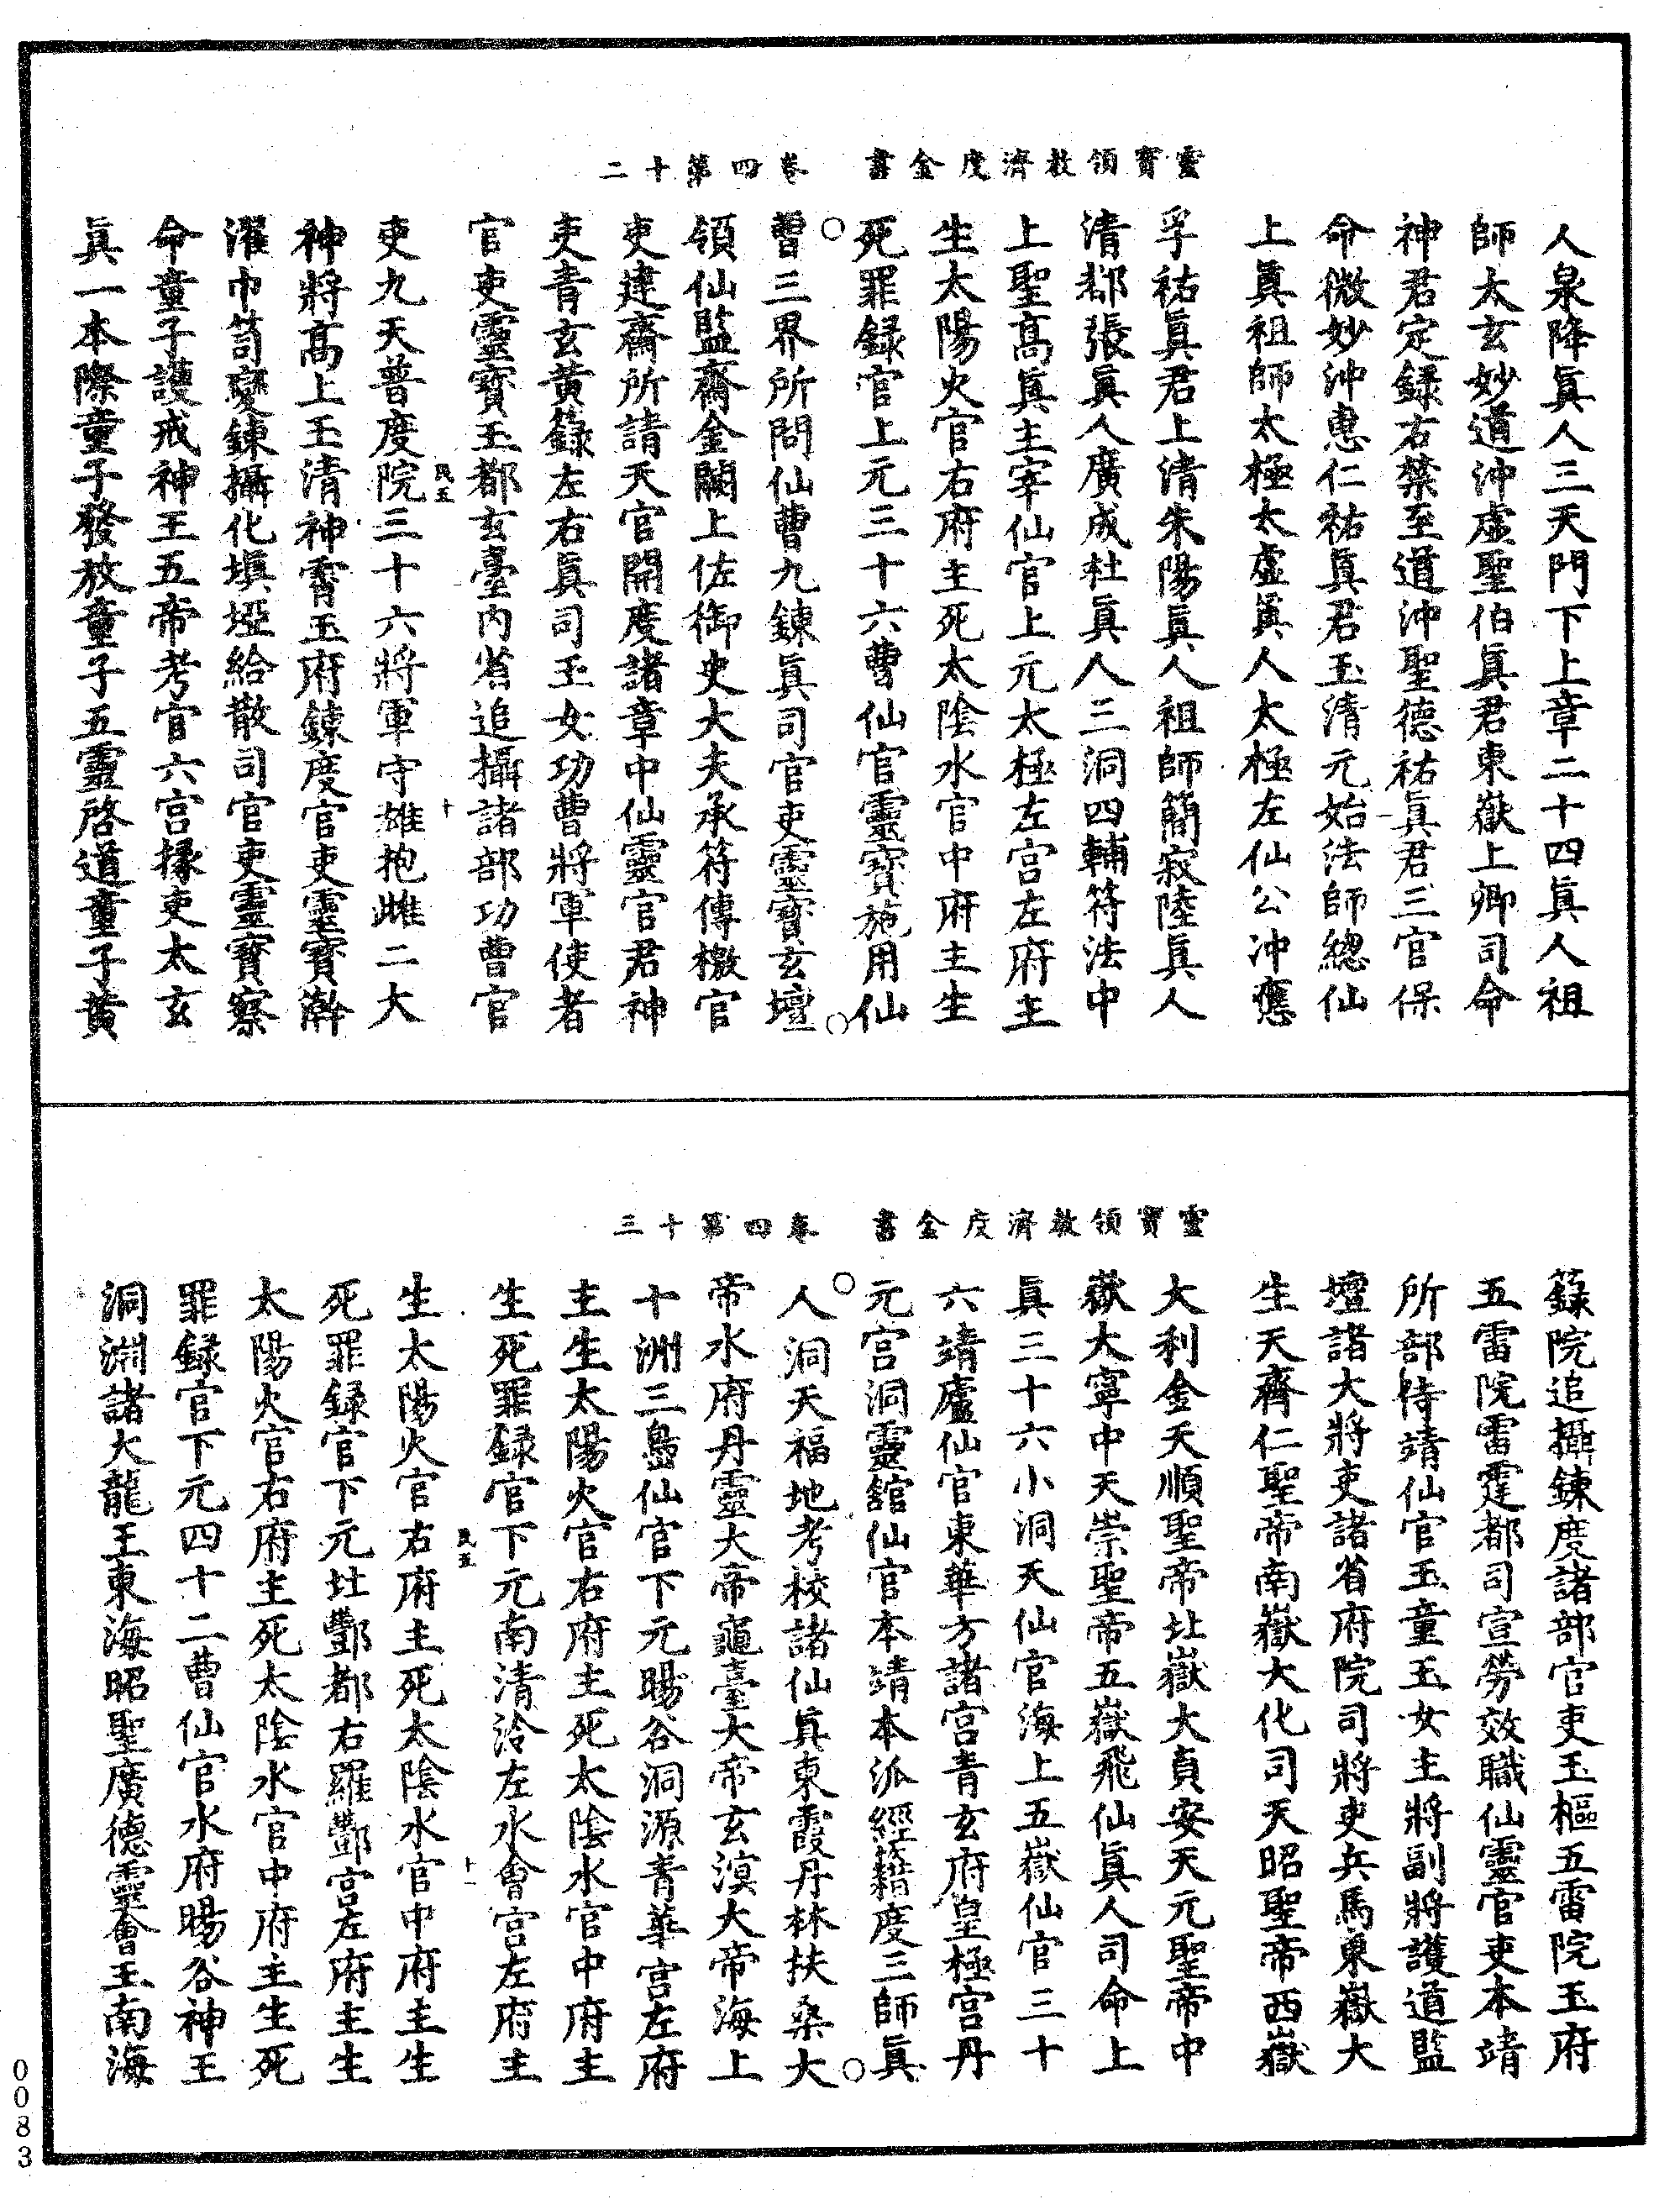 靈寶領教濟度金書　卷四第十二
人泉降眞人三天門下上章二十四眞人祖
師太玄妙道沖虛聖伯眞君東嶽上卿司命
神君定録右禁至道沖聖德祐眞君三官保
命微妙沖惠仁祐眞君玉清元始法師總仙
上眞祖師太極太虛眞人太極左仙公冲應
孚祐眞君上清朱陽眞人祖師簡寂陸眞人
清都張眞人廣成杜眞人三洞四輔符法中
上聖髙眞主宰仙官上元太極左宫左府主
生太陽火官右府主死太陰水官中府主生
死罪録官上元三十六曹仙官靈寶施用仙
曹三界所問仙曹九錬眞司官吏靈寶玄壇
領仙監齋金闕上佐御史大夫承符傳檄官
吏建齋所請天官開度諸章中仙靈官君神
吏青玄黄籙左右眞司玉女功曹將軍使者
官吏靈寶玉都玄臺内省追攝諸部功曹官
民五　十
吏九天普度院三十六將軍守雄抱雌二大
神將髙上玉清神霄玉府錬度官吏靈寶澣
濯巾笥變錬攝化塡埡給散司官吏靈寶察
命童子護戒神王五帝考官六宫掾吏太玄
眞一本際童子發放童子五靈啓道童子黄
靈寶領教濟度金書　卷四第十三
籙院追攝錬度諸部官吏玉樞五雷院玉府
五雷院雷霆都司宣勞效職仙靈官吏本靖
所部侍靖仙官玉童玉女主將副將護道監
壇諸大將吏諸省府院司將吏兵馬東嶽大
生天齊仁聖帝南嶽大化司天昭聖帝西嶽
大利金天順聖帝北嶽大貞安天元聖帝中
嶽大寧中天崇聖帝五嶽飛仙眞人司命上
眞三十六小洞天仙官海上五嶽仙官三十
六靖廬仙官東華方諸宫青玄府皇極宫丹
元宫洞靈舘仙官本靖本派經籍度三師眞
人洞天福地考校諸仙眞東霞丹林扶桑大
帝水府丹靈大帝䆴臺大帝玄溟大帝海上
十洲三島仙官下元暘谷洞源青華宫左府
主生太陽火官右府主死太陰水官中府主
生死罪録官下元南清泠左水會宫左府主
民五　十一
生太陽火官右府主死太陰水官中府主生
死罪録官下元北酆都右羅酆宫左府主生
太陽火官右府主死太陰水官中府主生死
罪録官下元四十二曹仙官水府暘谷神王
洞淵諸大龍王東海昭聖廣德靈會王南海
0083